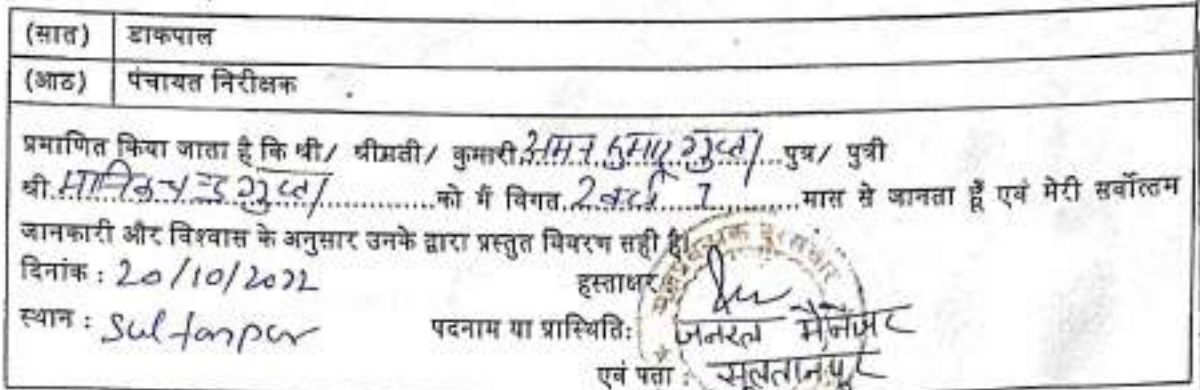 (सात) डाकपाल
(आठ) पंचायत निरीक्षक
प्रमाणित किया जाता है कि श्री/ श्रीमती/ कुमारी अमन कुमार गुप्ता पुत्र/ पुत्री
श्री. मानिकचन्द गुप्ता को मैं विगत 2 वर्ष 7 मास से जानता हूँ एवं मेरी सर्वोत्तम
जानकारी और विश्वास के अनुसार उनके द्वारा प्रस्तुत विवरण सही है।
दिनांक : 20/10/2022 हस्ताक्षर
स्थान : Sultanpur पदनाम या प्रास्थिति: जनरल मैनेजर
एवं पता : सुलतानपुर